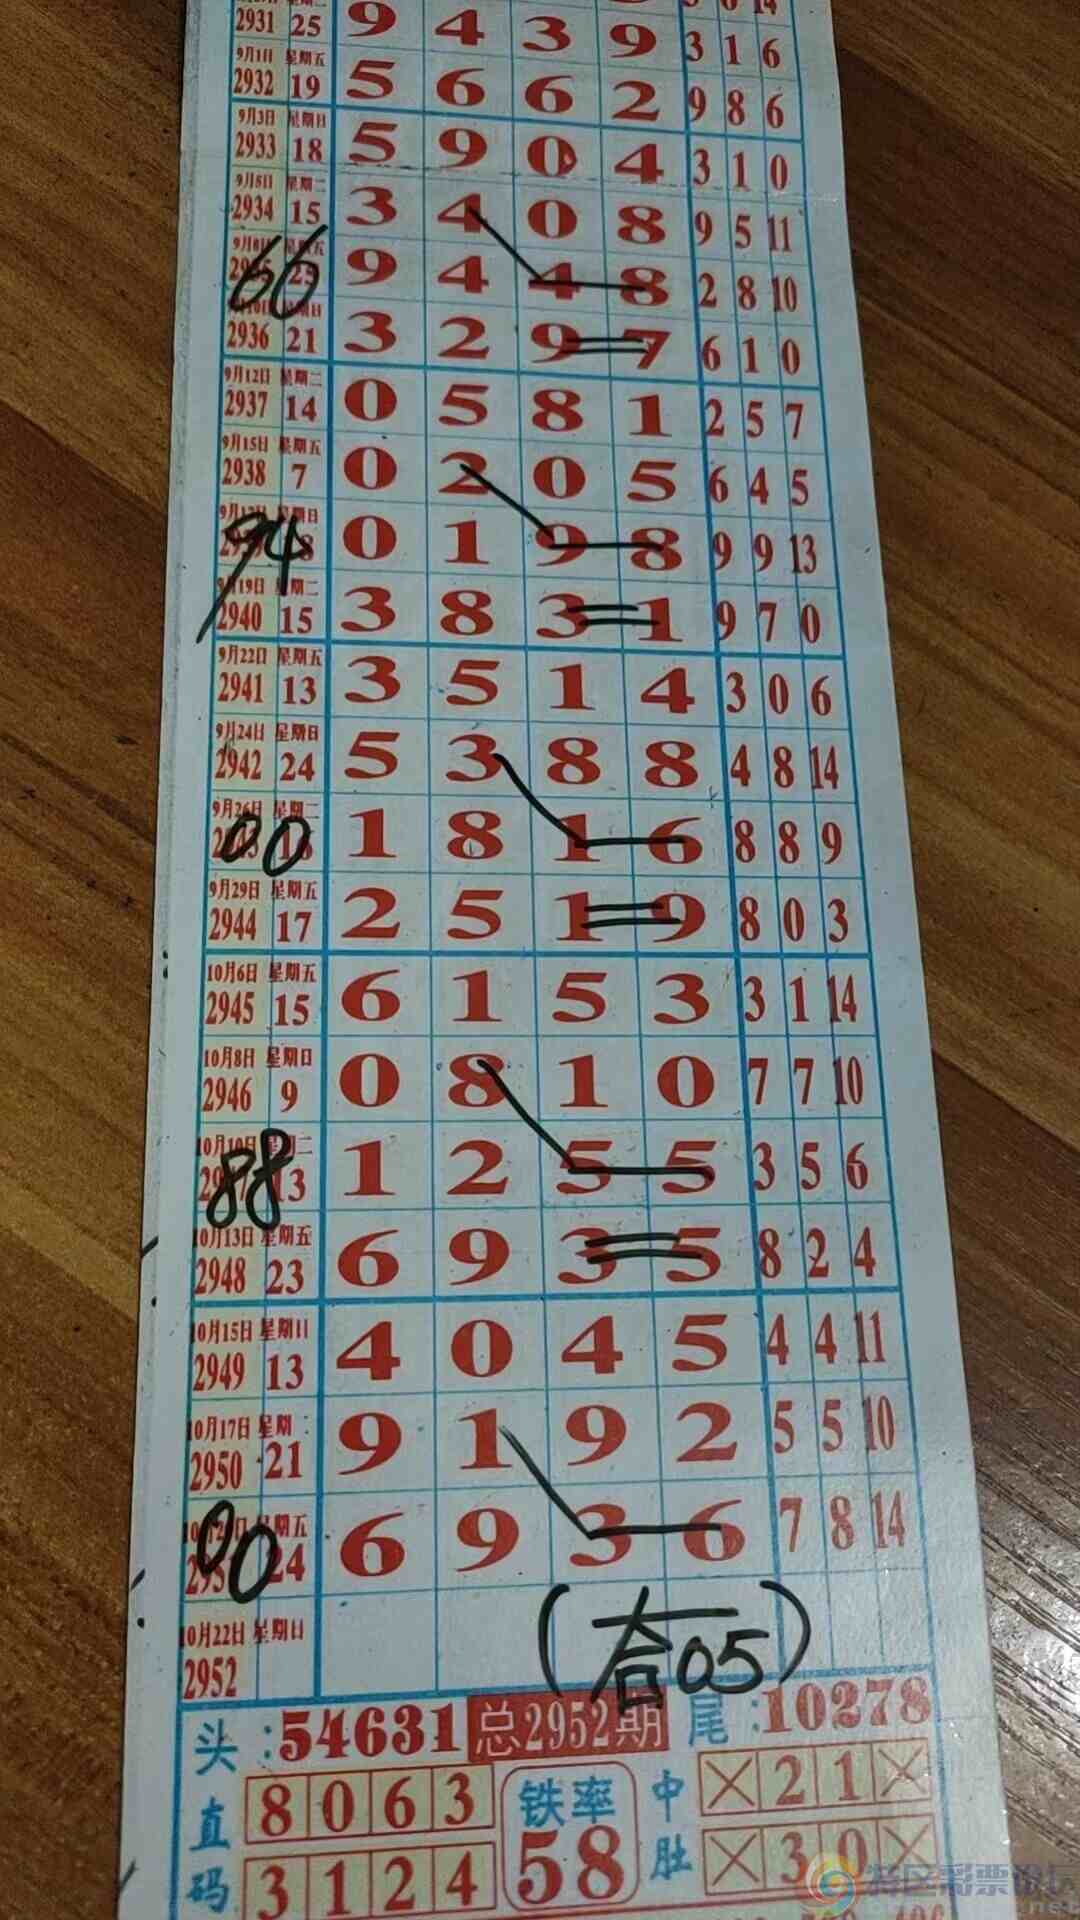 14
2931 25 9 4 3 9 3 1 6
9月1日 星期五
2932 19 5 6 6 2 9 8 6
9月3日 星期日
2933 18 5 9 0 4 3 1 0
9月5日 星期二
2934 15 3 4 0 8 9 5 11
9月8日
66 9 4 4 8 2 8 10
2936 21 3 2 9 7 6 1 0
9月12日 星期二
2937 14 0 5 8 1 2 5 7
9月15日 星期五
2938 7 0 2 0 5 6 4 5
94 0 1 9 8 9 9 13
9月19日 星期二
2940 15 3 8 3 1 9 7 0
9月22日 星期五
2941 13 3 5 1 4 3 0 6
9月24日 星期日
2942 24 5 3 8 8 4 8 14
9月26日 星期二
00 1 8 1 6 8 8 9
9月29日 星期五
2944 17 2 5 1 9 8 0 3
10月6日 星期五
2945 15 6 1 5 3 3 1 14
10月8日 星期日
2946 9 0 8 1 0 7 7 10
10月10日
88 13 1 2 5 5 3 5 6
10月13日 星期五
2948 23 6 9 3 5 8 2 4
10月15日 星期日
2949 13 4 0 4 5 4 4 11
10月17日 星期
2950 21 9 1 9 2 5 5 10
00 24 6 9 3 6 7 8 14
10月22日 星期日
2952
(合05)
头:54631 总2952期 尾:10278
直码 8 0 6 3
3 1 2 4
铁率
58
中肚 2 1
3 0
特区彩票论坛